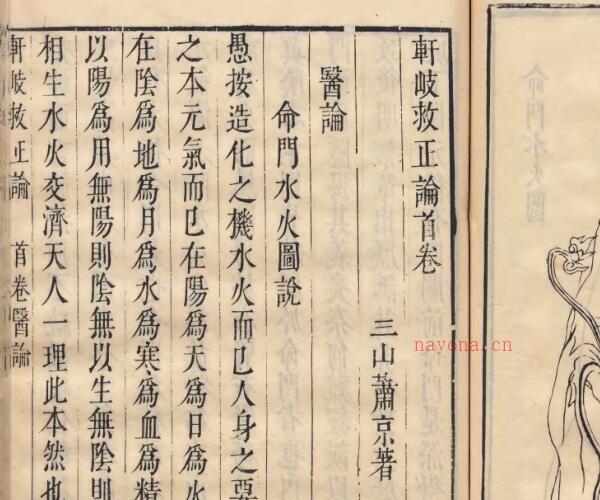 軒岐救正論首卷
三山蕭京著
醫論
命門水火圖說
愚按造化之機水火而已人身之
之本元氣而已在陽爲天爲日爲火
在陰爲地爲月爲水爲寒爲血爲精
以陽爲用無陽則陰無以生無陰則
相生水火交濟天人一理此本然也
軒岐救正論 首卷醫論
命門水火圖
nayona.cn